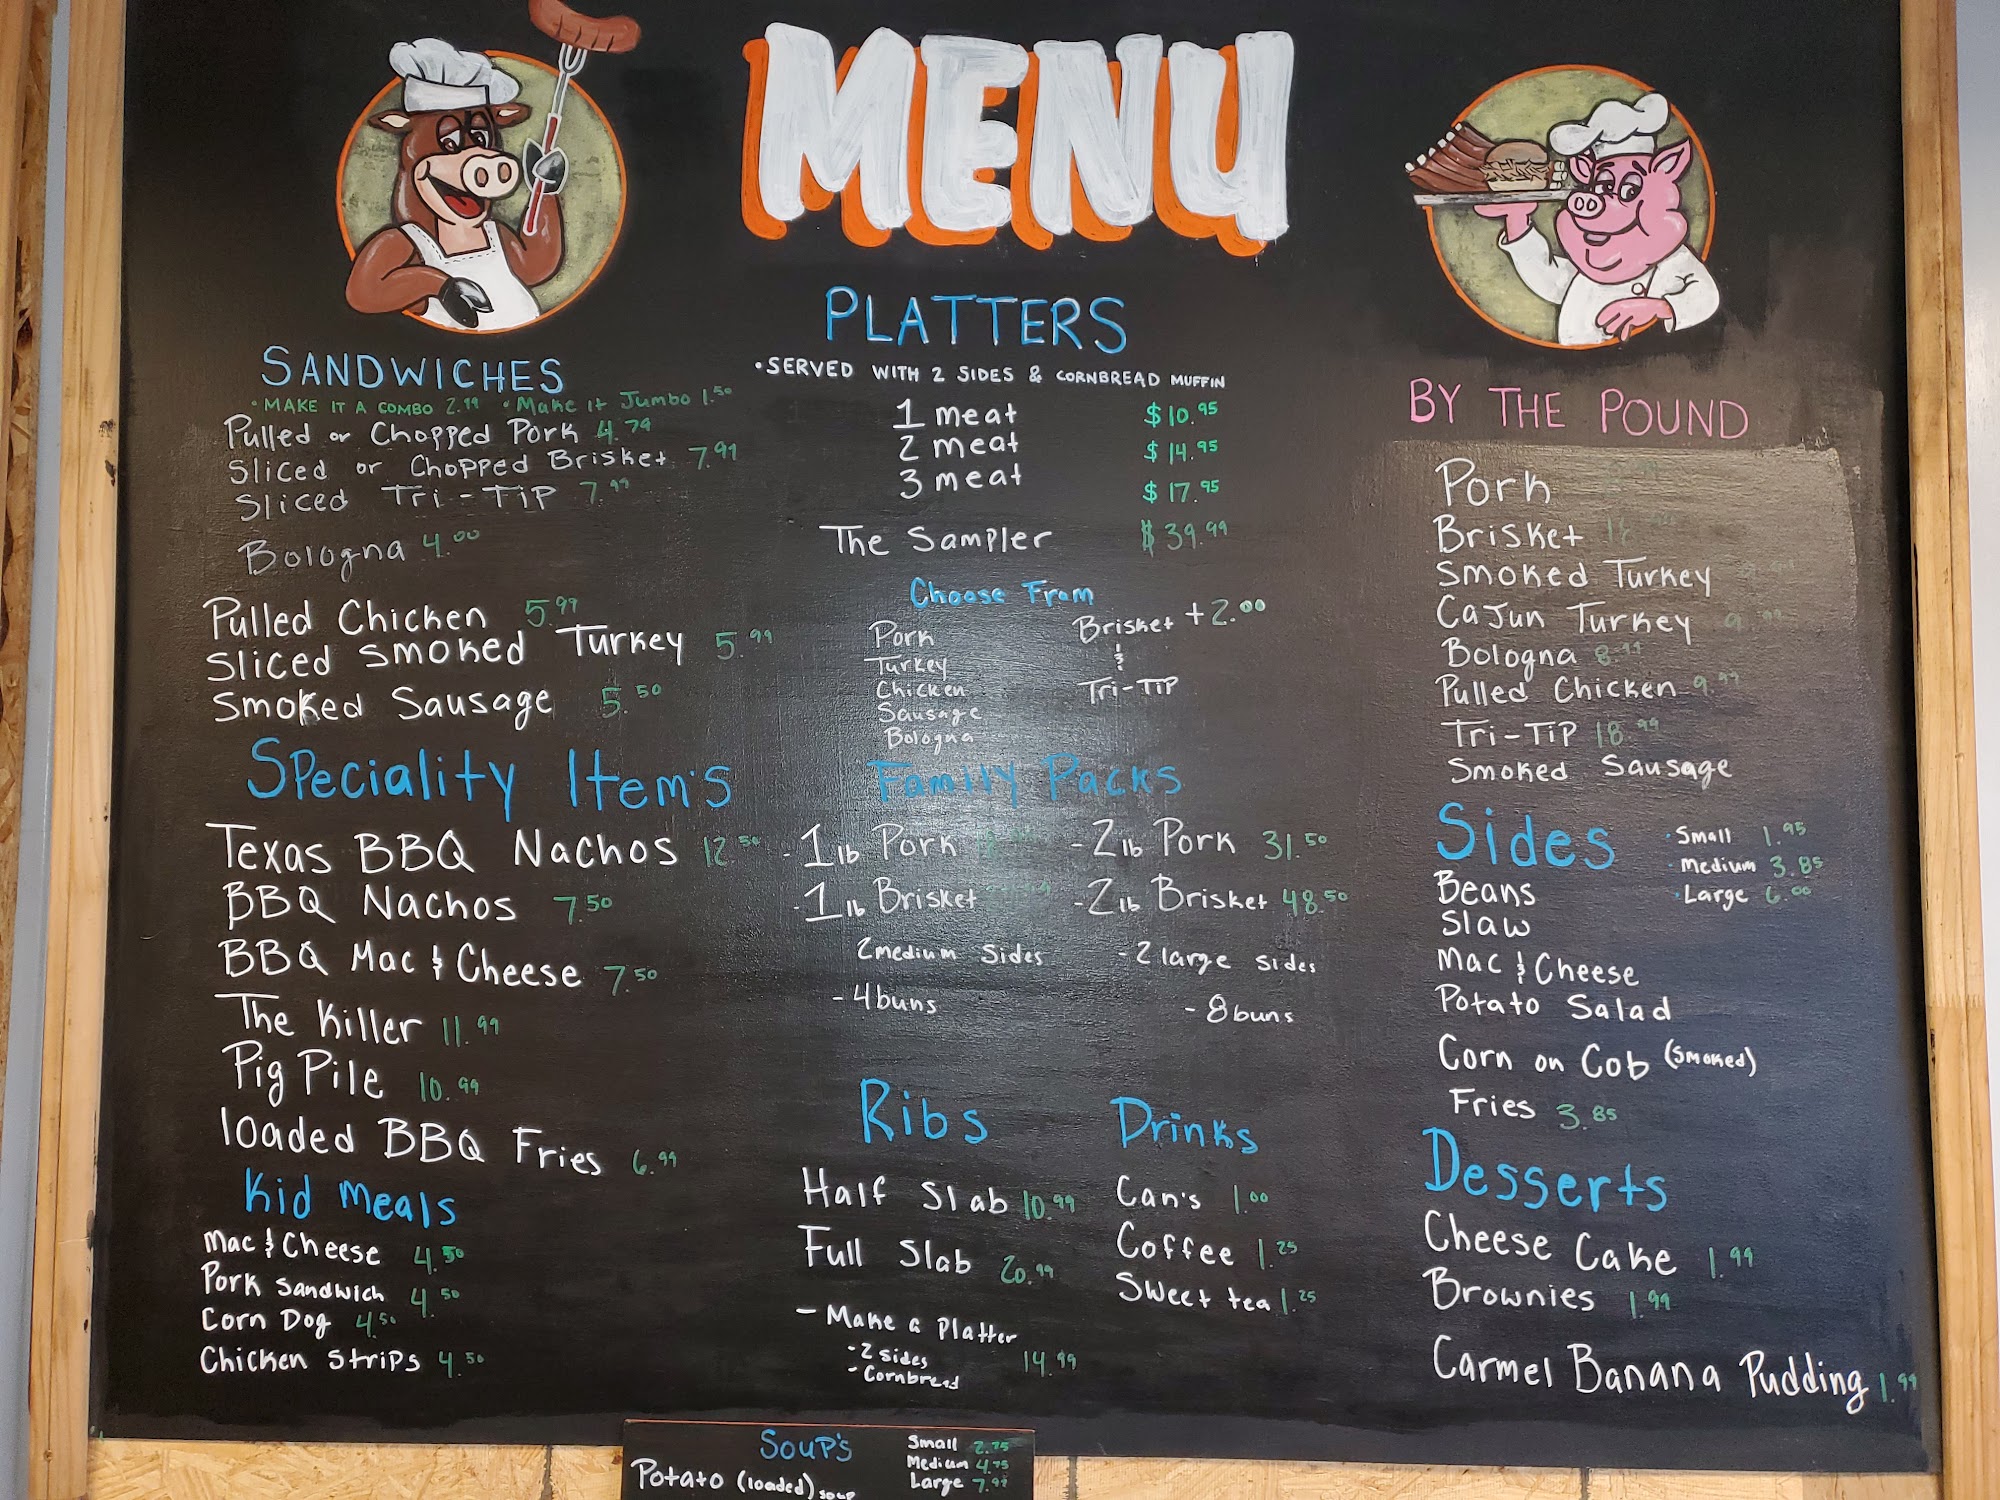 MENU
SANDWICHES
• MAKE IT A COMBO 2.99 • Make it Jumbo 1.50
Pulled or Chopped Pork 4.79
Sliced or Chopped Brisket 7.99
Sliced Tri-Tip 7.99
Bologna 4.00
Pulled Chicken 5.99
Sliced Smoked Turkey 5.99
Smoked Sausage 5.50
Speciality Item's
Texas BBQ Nachos 12.50
BBQ Nachos 7.50
BBQ Mac & Cheese 7.50
The Killer 11.99
Pig Pile 10.99
loaded BBQ Fries 6.99
Kid Meals
Mac & Cheese 4.50
Pork Sandwich 4.50
Corn Dog 4.50
Chicken Strips 4.50
PLATTERS
• SERVED WITH 2 SIDES & CORNBREAD MUFFIN
1 meat $10.95
2 meat $14.95
3 meat $17.95
The Sampler $39.99
Choose From
Pork
Turkey
Chicken
Sausage
Bologna
Brisket +2.00
&
Tri-Tip
Family Packs
- 1 lb Pork
- 1 lb Brisket
2 medium Sides
- 4 buns
- 2 lb Pork 31.50
- 2 lb Brisket 48.50
- 2 large sides
- 8 buns
Ribs
Half Slab 10.99
Full Slab 20.99
- Make a Platter
- 2 sides
- Cornbread
14.99
Drinks
Can's 1.00
Coffee 1.25
Sweet tea 1.25
BY THE POUND
Pork
Brisket
Smoked Turkey
Cajun Turkey
Bologna 8.99
Pulled Chicken 9.99
Tri-Tip 18.99
Smoked Sausage
Sides
• Small 1.95
• Medium 3.85
• Large 6.00
Beans
Slaw
Mac & Cheese
Potato Salad
Corn on Cob (Smoked)
Fries 3.85
Desserts
Cheese Cake 1.99
Brownies 1.99
Carmel Banana Pudding 1.99
Soup's
Small 2.75
Medium 4.75
Large 7.99
Potato (loaded) soup